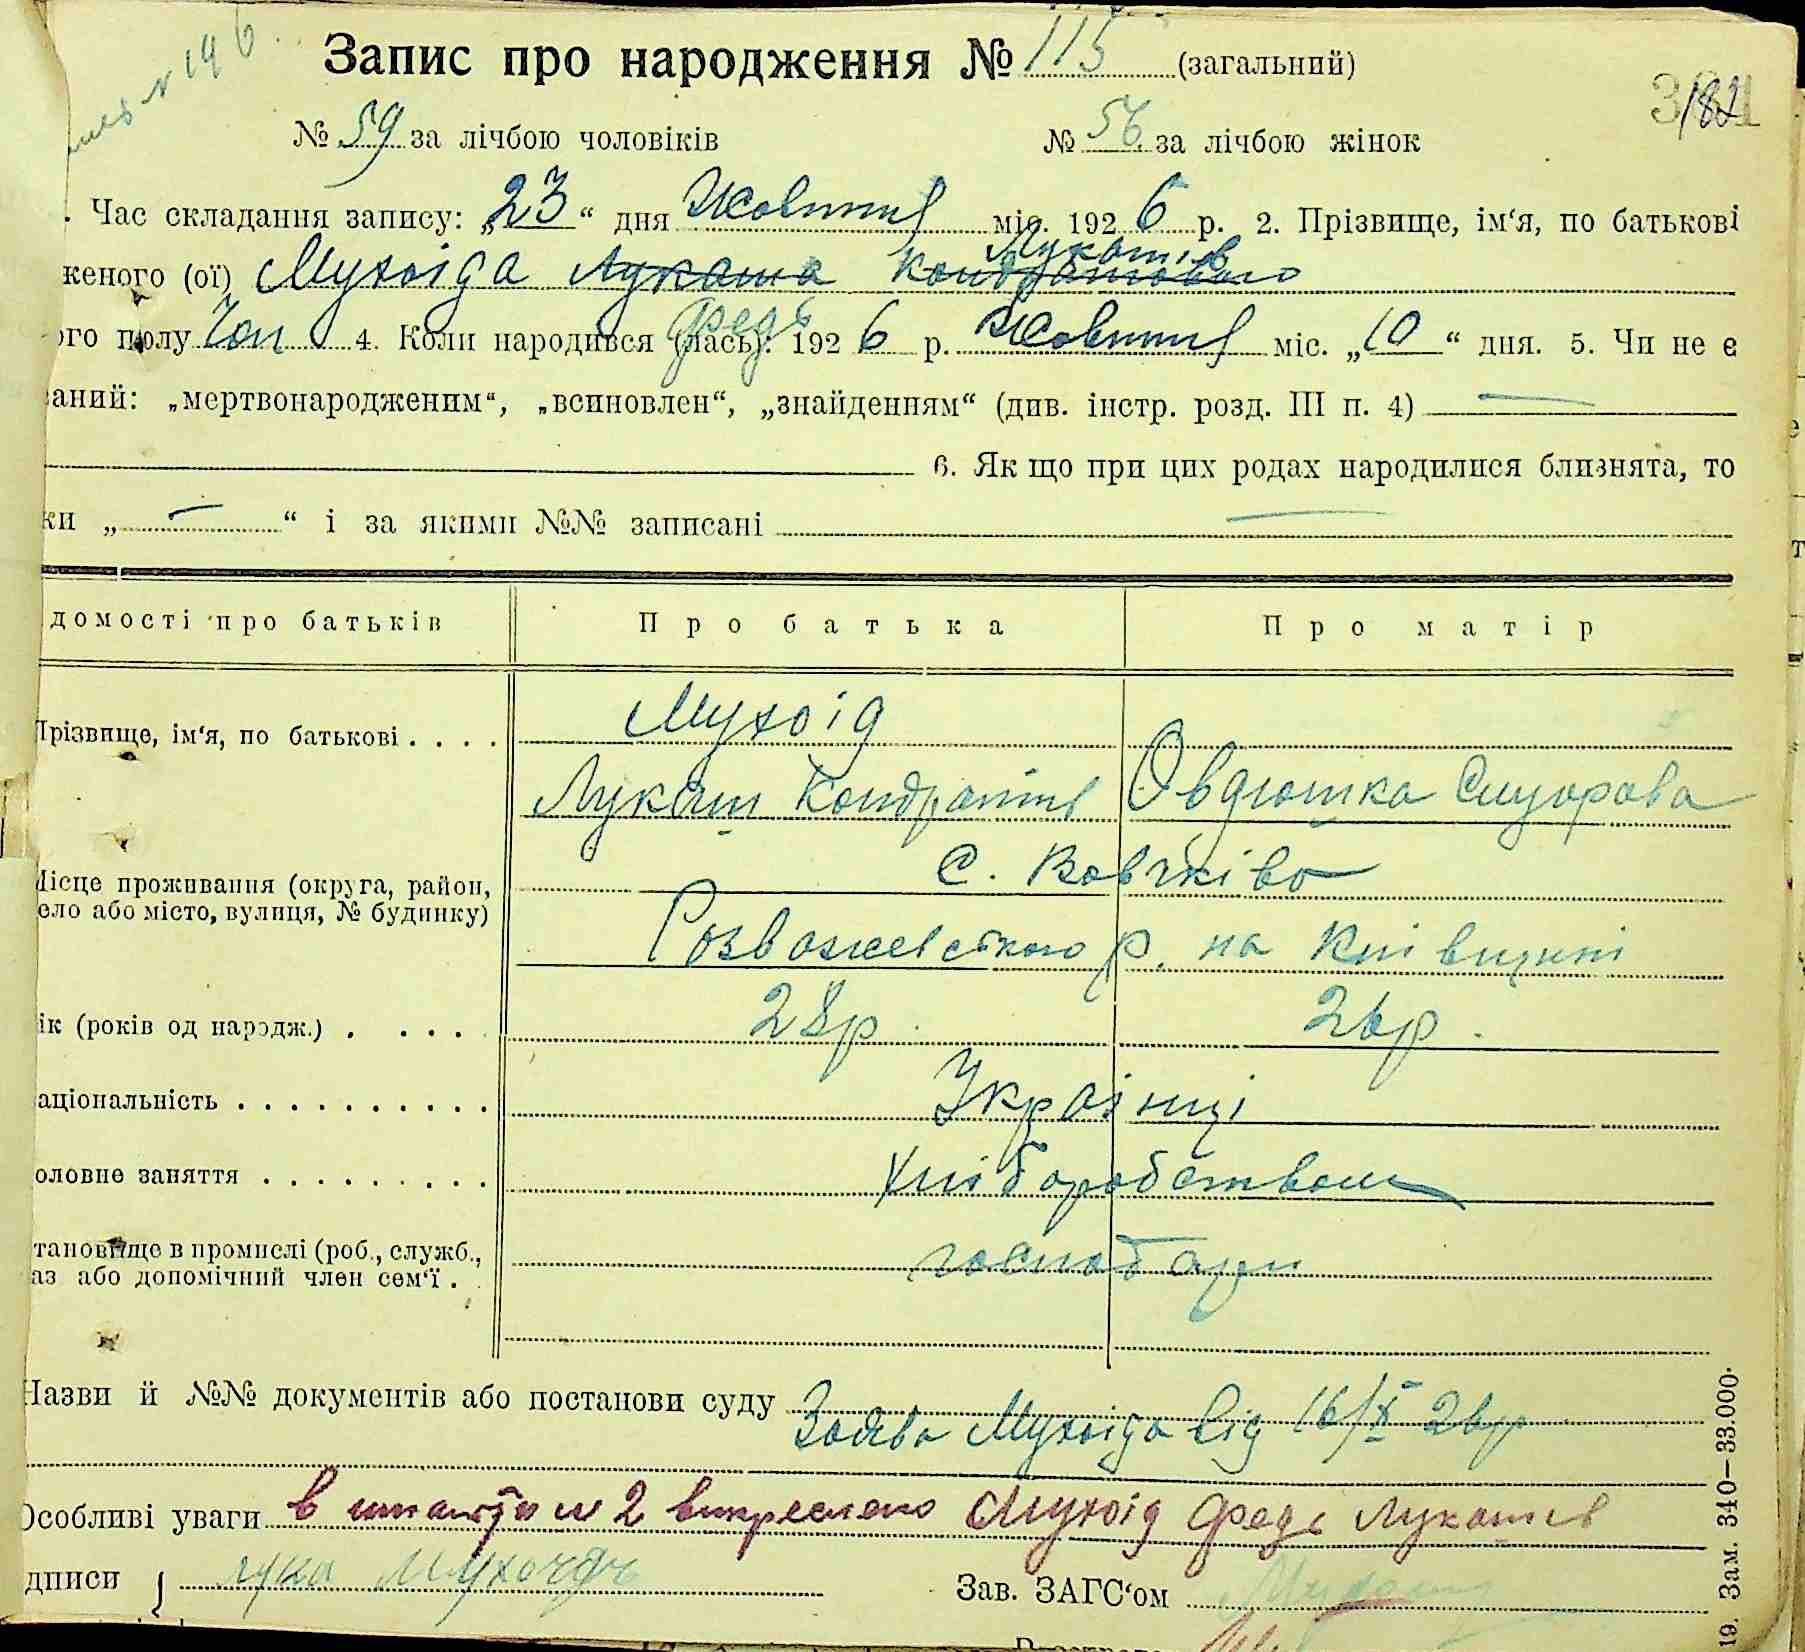 № 146
Запис про народження № 115 (загальний)
182
№ 59 за лічбою чоловіків № 56 за лічбою жінок
. Час складання запису: „23“ дня Жовтня міс. 1926 р. 2. Прізвище, ім‘я, по батькові
Лукашів
женого (ої) Мухоіда Лукаша Кондратового
Федь
ого полу Чол 4. Коли народився (лась): 1926 р. Жовтня міс. „10“ дня. 5. Чи не є
ваний: „мертвонародженим“, „всиновлен“, „знайденням“ (див. інстр. розд. III п. 4) —
6. Як що при цих родах народилися близнята, то
ки „—“ і за якими №№ записані —
домості про батьків Про батька Про матір
Прізвище, ім‘я, по батькові . . . . Мухоід
Лукаш Кондратів Овдюшка Сидорова
Місце проживання (округа, район, С. Вовчків
ело або місто, вулиця, № будинку) Розважевського р. на Київщині
ік (років од народж.) . . . . . 28р. 26р.
аціональність . . . . . . . . . . Українці
оловне заняття . . . . . . . . . Хліборобством
тановище в промислі (роб., служб., господарі
аз або допомічний член сем‘ї .
Назви й №№ документів або постанови суду Заява Мухоіда від 16/X 26р
Особливі уваги в п 2 викреслено Мухоід Федь Лукашів
дписи } лука Мухоїдъ Зав. ЗАГС‘ом
19. Зам. 340—33.000.